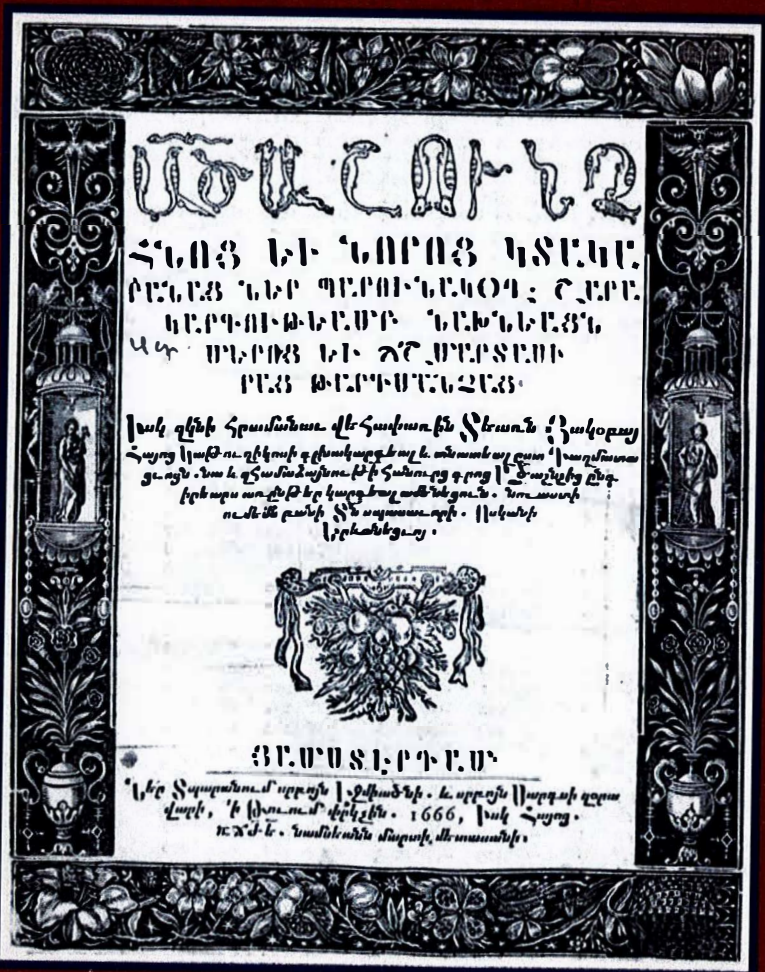 ԱԾԱՇՈՒՆՉ
ՀՆՈՑ ԵՒ ՆՈՐՈՑ ԿՏԱԿԱ
ՐԱՆԱՑ ՆԵՐ ՊԱՐՈՒՆԱԿՕՂ։ ՇԱՐԱ
ԿԱՐԳՈՒԹԵԱՄԲ ՆԱԽՆԵԱՑՆ
ՄԵՐՈՑ ԵՒ ՃՇՄԱՐՏԱՍԻ
ՐԱՑ ԹԱՐԳՄԱՆՉԱՑ
Իսկ զկնի հրամանաւ վեհափառին Տեառն Յակօբայ
Հայոց Կաթուղիկոսի գլխակարգեալ և տնատեալ ըստ Դաղմատա
ցւոյն. նա և զհամաձայնութի համուրց գրոց ԱԾաշնչից ընդ
իրեարս առընթեր կարգեալ ամենեցուն. նուաստի
ումեմն բանի Տն սպասաւորի. Ոսկանի
Երևանեցւոյ.
ՅԱՄՍՏԷՐԴԱՄ
Ներ Տպարանում սրբոյն Էջմիածնի. և սրբոյն Սարգսի զօրա
վարի, ՛ի Թուում փրկչին. 1666, Իսկ Հայոց.
ՌՃԺԵ. նամսեանն մարտի մետասանի.